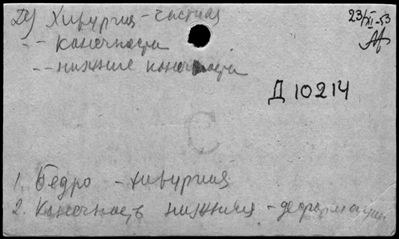 Д) Хирургия - частная
23/XI-53
-- конечности
-- нижние конечности
Д 10214
С
1. Бедро - хирургия
2. Конечность нижняя - деформации